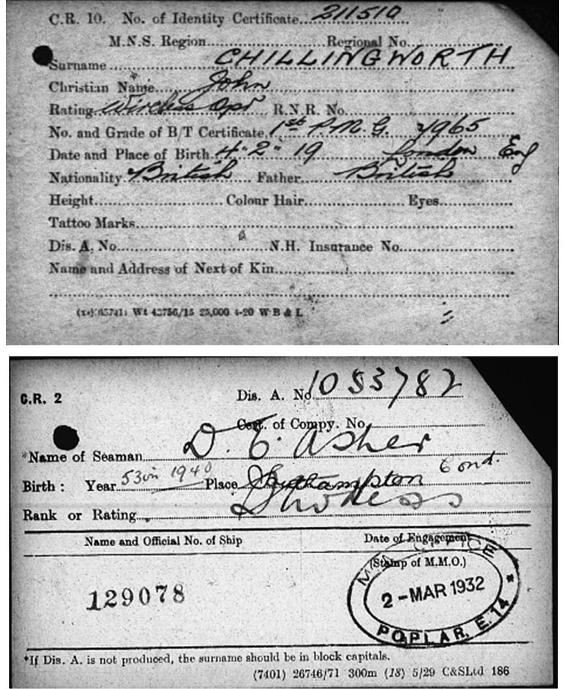 C.R. 10. No. of Identity Certificate 211510
M.N.S. Region Regional No.
Surname CHILLINGWORTH
Christian Name John
Rating Wireless Opr R.N.R. No.
No. and Grade of B/T Certificate 1st P.M.G. 7965
Date and Place of Birth 4.2.19 London Eng
Nationality British Father British
Height Colour Hair Eyes
Tattoo Marks
Dis. A. No. N.H. Insurance No.
Name and Address of Next of Kin
Wt 42756/15 25,000 4-20 W B & L
C.R. 2 Dis. A. No 1053782
Cert. of Compy. No.
*Name of Seaman D. E. Asher
Birth : Year Place
Rank or Rating
Name and Official No. of Ship Date of Engagement
(Stamp of M.M.O.)
129078
2-MAR 1932
POPLAR, E.14
*If Dis. A. is not produced, the surname should be in block capitals.
(7401) 26746/71 300m (18) 5/29 C&SLtd 186